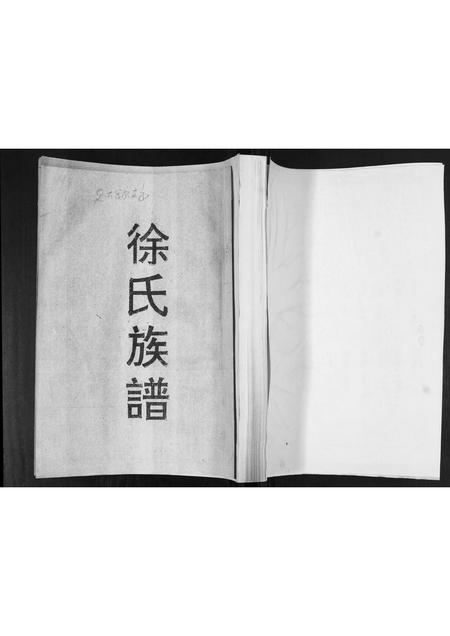 徐氏族譜